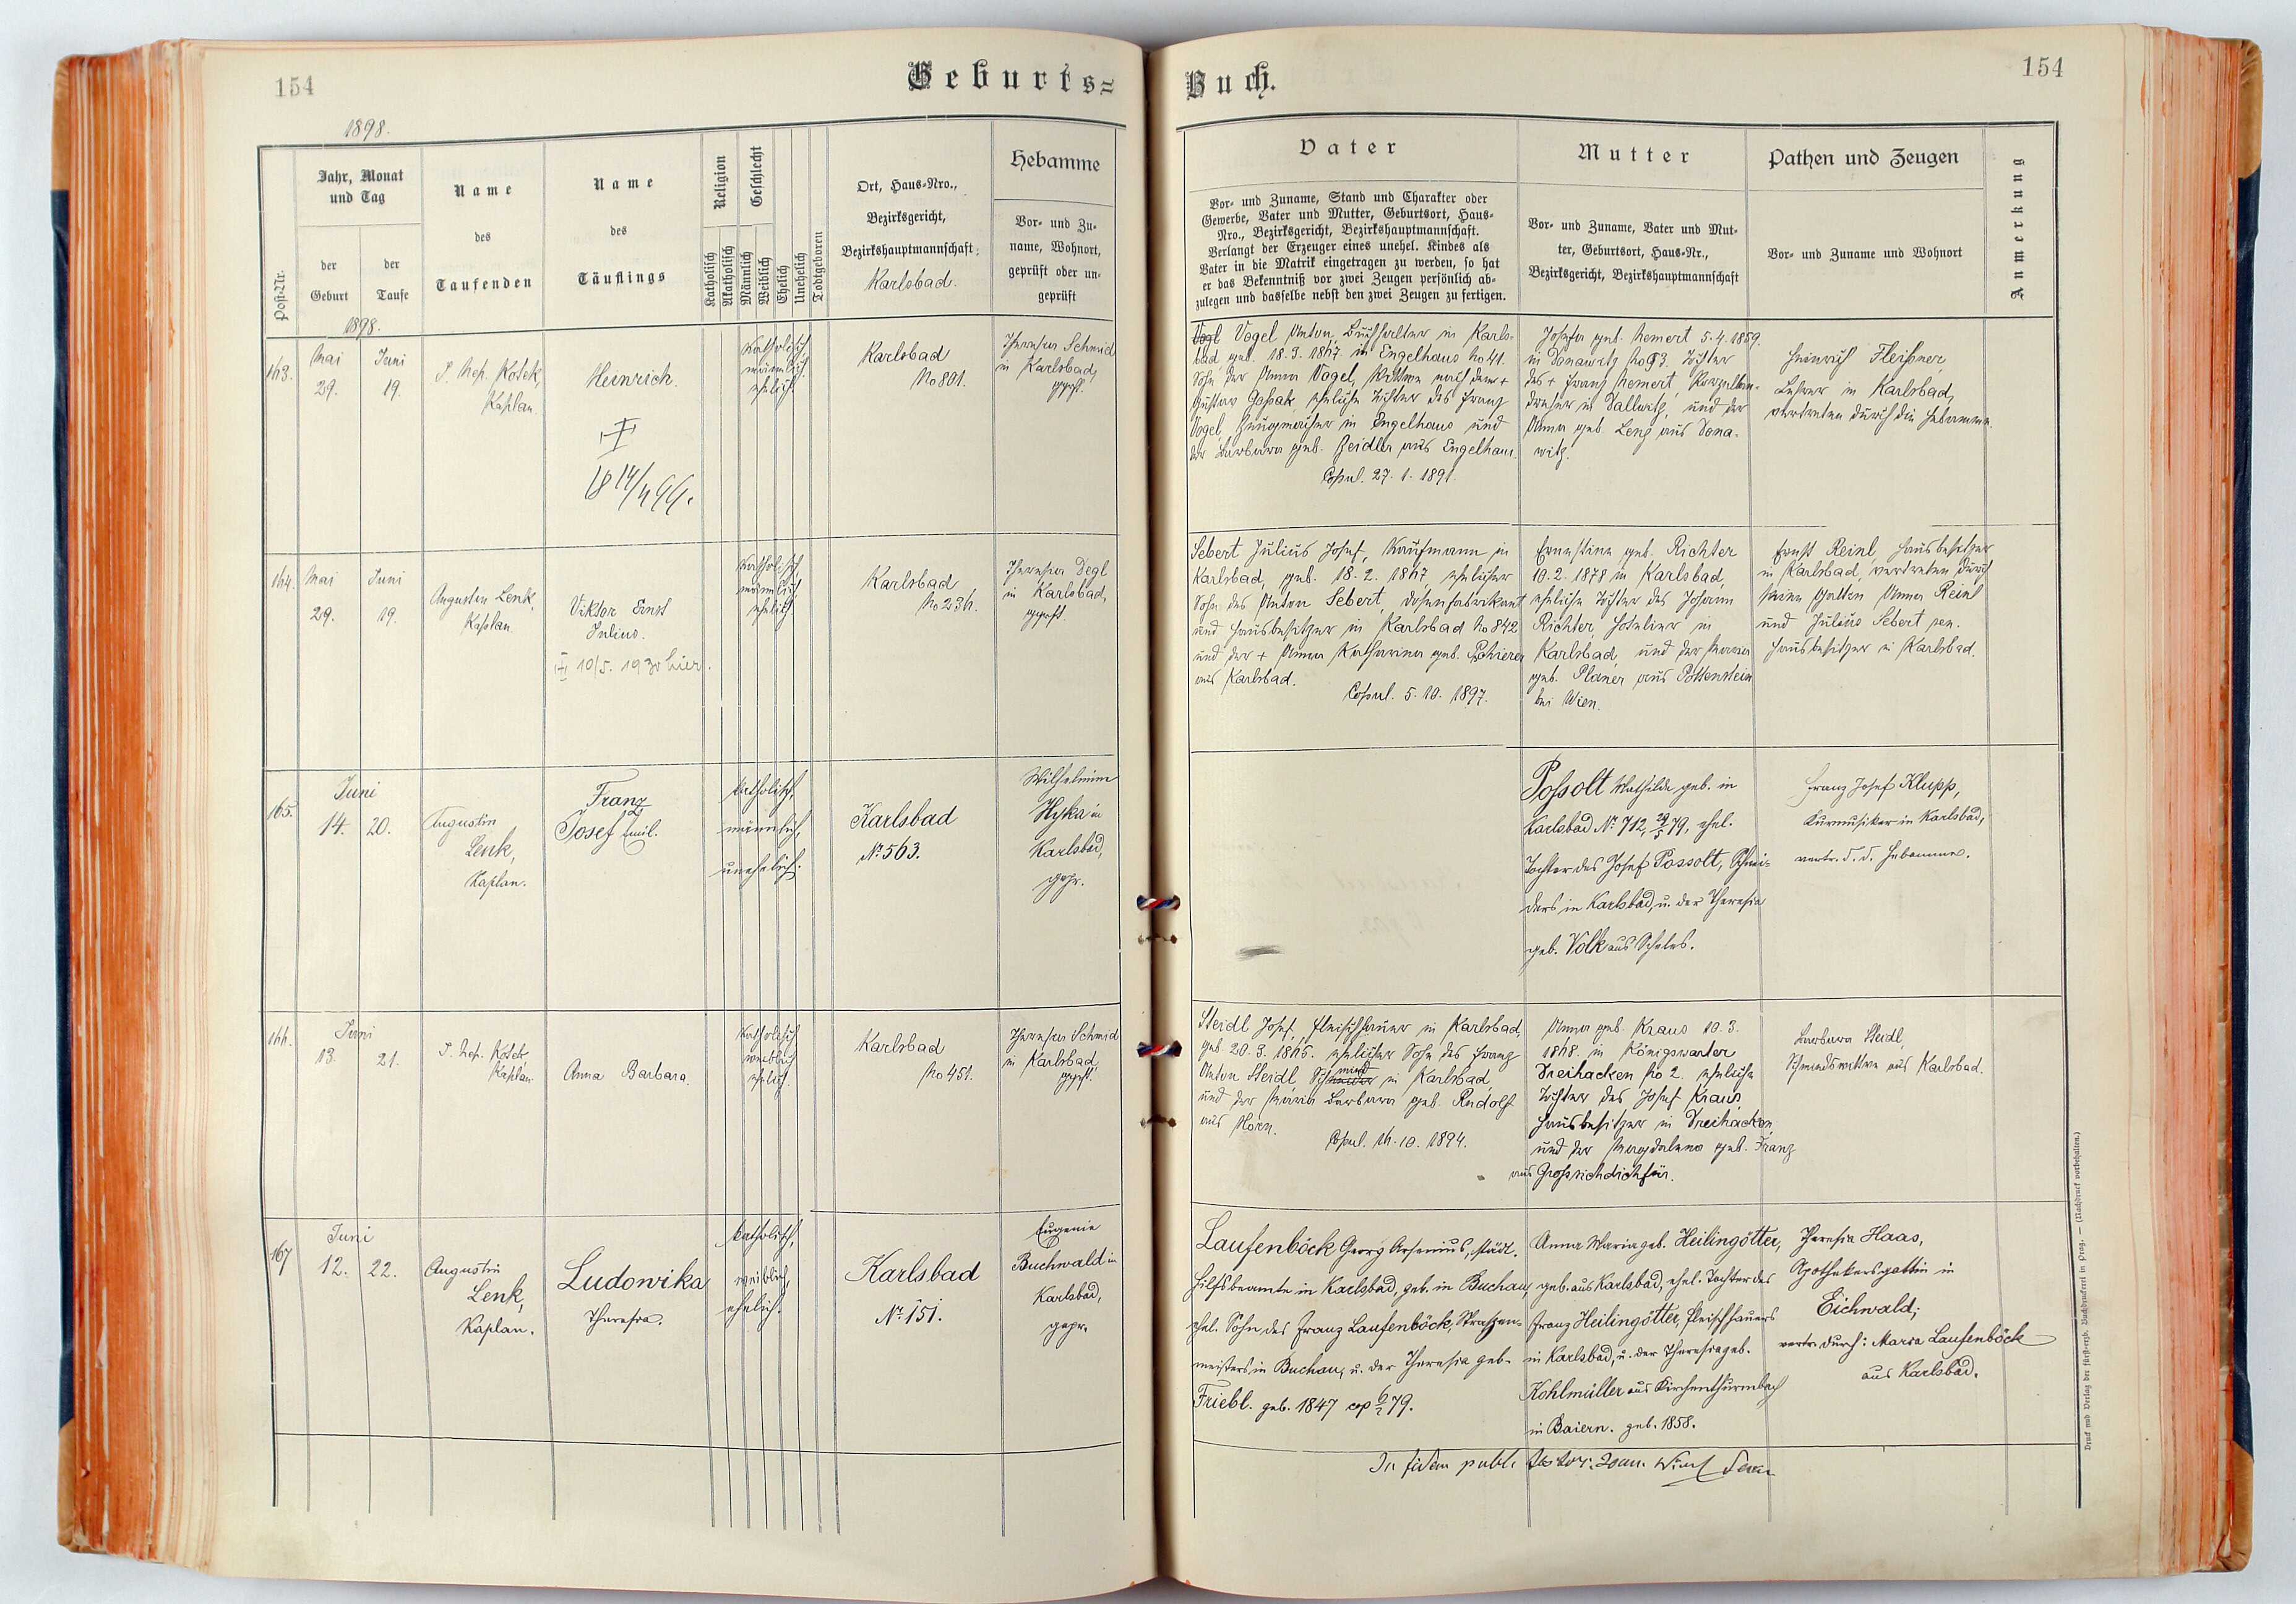 154
Geburts=
1898.
Post-Nr.
Jahr, Monat
und Tag
der
Geburt
der
Taufe
Name
des
Taufenden
Name
des
Täuflings
Religion
Katholisch
Akatholisch
Geschlecht
Männlich
Weiblich
Ehelich
Unehelich
Todtgeboren
Ort, Haus-Nro.,
Bezirksgericht,
Bezirkshauptmannschaft:
Karlsbad.
Hebamme
Vor- und Zu-
name, Wohnort,
geprüft oder un-
geprüft
1898.
163.
Mai
29.
Juni
19.
J. Nep. Kosek,
Kaplan.
Heinrich.
katholisch
männlich
ehelich.
Karlsbad
No 801.
Theresia Schmid
in Karlsbad,
gepft.
164.
Mai
29.
Juni
19.
Augustin Lenk,
Kaplan
Viktor Ernst
Julius.
10/5. 1930 hier.
katholisch
männlich
ehelich.
Karlsbad
No 236.
Theresia Degl
in Karlsbad,
gepft.
165.
Juni
14. 20.
Augustin
Lenk,
Kaplan.
Franz
Josef Emil.
katholisch,
männlich,
unehelich.
Karlsbad
No. 563.
Wilhelmine
Hyka in
Karlsbad,
gepr.
166.
Juni
13. 21.
J. Nep. Kosek
Kaplan
Anna Barbara.
katholisch
weiblich
ehelich.
Karlsbad
No 451.
Theresia Schmid
in Karlsbad,
gepft.
167
Juni
12. 22.
Augustin
Lenk,
Kaplan.
Ludowika
Theresia.
katholisch,
weiblich,
ehelich.
Karlsbad
No. 151.
Eugenie
Buchwald in
Karlsbad,
gepr.
Buch.
154
Vater
Vor- und Zuname, Stand und Charakter oder
Gewerbe, Vater und Mutter, Geburtsort, Haus-
Nro., Bezirksgericht, Bezirkshauptmannschaft.
Verlangt der Erzeuger eines unehel. Kindes als
Vater in die Matrik eingetragen zu werden, so hat
er das Bekenntniß vor zwei Zeugen persönlich ab-
zulegen und dasselbe nebst den zwei Zeugen zu fertigen.
Mutter
Vor- und Zuname, Vater und Mut-
ter, Geburtsort, Haus-Nr.,
Bezirksgericht, Bezirkshauptmannschaft
Pathen und Zeugen
Vor- und Zuname und Wohnort
Anmerkung
Vogl Vogel Anton, Buchhalter in Karls-
bad geb. 18. 3. 1867. in Engelhaus No 41.
Sohn der Anna Vogel, Wittwe nach dem +
Gustav Gaßak, eheliche Tochter des Franz
Vogel, Zeugmacher in Engelhaus und
der Barbara geb. Zeidler aus Engelhaus.
Copul. 27. 1. 1891.
Josefa geb. Nemert 5. 4. 1859.
in Donawitz No 93, Tochter
des + Franz Nemert, Porzellan-
dreher in Dallwitz, und der
Anna geb. Lenz aus Dona-
witz.
Heinrich Fleißner,
Lehrer in Karlsbad,
vertreten durch die Hebamme.
Sebert Julius Josef, Kaufmann in
Karlsbad, geb. 18. 2. 1867, ehelicher
Sohn des Anton Sebert, Dosenfabrikant
und Hausbesitzer in Karlsbad No 842
und der + Anna Katharina geb. Schierer
aus Karlsbad.
Copul. 5. 10. 1897.
Ernestine geb. Richter
10. 2. 1878 in Karlsbad,
eheliche Tochter des Johann
Richter, Hotelier in
Karlsbad, und der Maria
geb. Planer aus Pottenstein
bei Wien.
Ernst Reinl, Hausbesitzer
in Karlsbad, vertreten durch
seine Gattin Anna Reinl
und Julius Sebert sen.
Hausbesitzer in Karlsbad.
Possolt Mathilde geb. in
Karlsbad No. 712, 29/5 79, ehel.
Tochter des Josef Possolt, Schnei-
ders in Karlsbad, u. der Theresia
geb. Volk aus Scheles.
Franz Josef Klupp,
Kurmusiker in Karlsbad,
vertr. d. d. Hebamme.
Steidl Josef, Fleischhauer in Karlsbad,
geb. 20. 3. 1865. ehelicher Sohn des Franz
Anton Steidl Schmied in Karlsbad,
und der Maria Barbara geb. Rudolf
aus Horn.
Copul. 16. 10. 1894.
Anna geb. Kraus 10. 3.
1868. in Königswarter
Dreihacken No 2. eheliche
Tochter des Josef Kraus,
Hausbesitzer in Dreihacken,
und der Magdalena geb. Franz
aus Grossichdichfür.
Barbara Steidl,
Schmiedswittwe aus Karlsbad.
Laufenböck Georg Arsenius, städt.
Hilfsbeamte in Karlsbad, geb. in Buchau,
ehel. Sohn des Franz Laufenböck, Straßen-
meisters in Buchau, u. der Theresia geb.
Friebl. geb. 1847 cop 6/2 79.
Anna Maria geb. Heilingötter,
geb. aus Karlsbad, ehel. Tochter des
Franz Heilingötter, Fleischhauers
in Karlsbad, u. der Theresia geb.
Kohlmüller aus Kirchenthurmbach
in Baiern. geb. 1858.
Theresia Haas,
Apothekersgattin in
Eichwald;
vertr. durch: Maria Laufenböck
aus Karlsbad.
In fidem publ.
Druck und Verlag der fürst-erzb. Buchdruckerei in Prag. — (Nachdruck vorbehalten.)